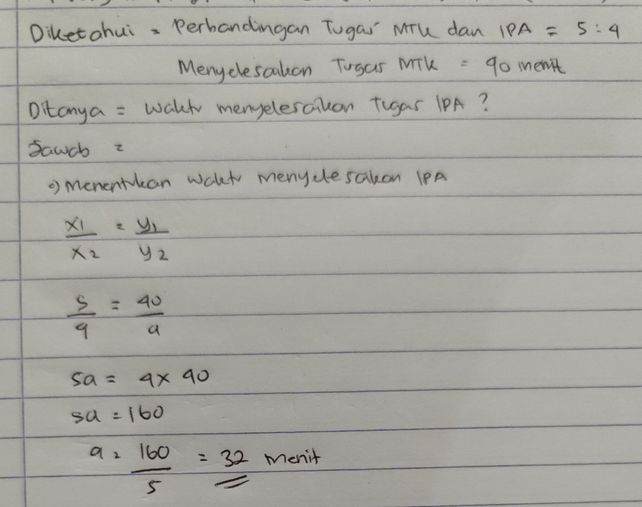 Diketahui = Perbandingan Tugas MTK dan IPA = 5 : 4
Menyelesaikan Tugas MTK = 40 menit
Ditanya = Waktu menyelesaikan tugas IPA ?
Jawab =
•) Menentukan waktu menyelesaikan IPA
x1/x2 = y1/y2
5/4 = 40/a
5a = 4 x 40
5a = 160
a = 160/5 = 32 menit